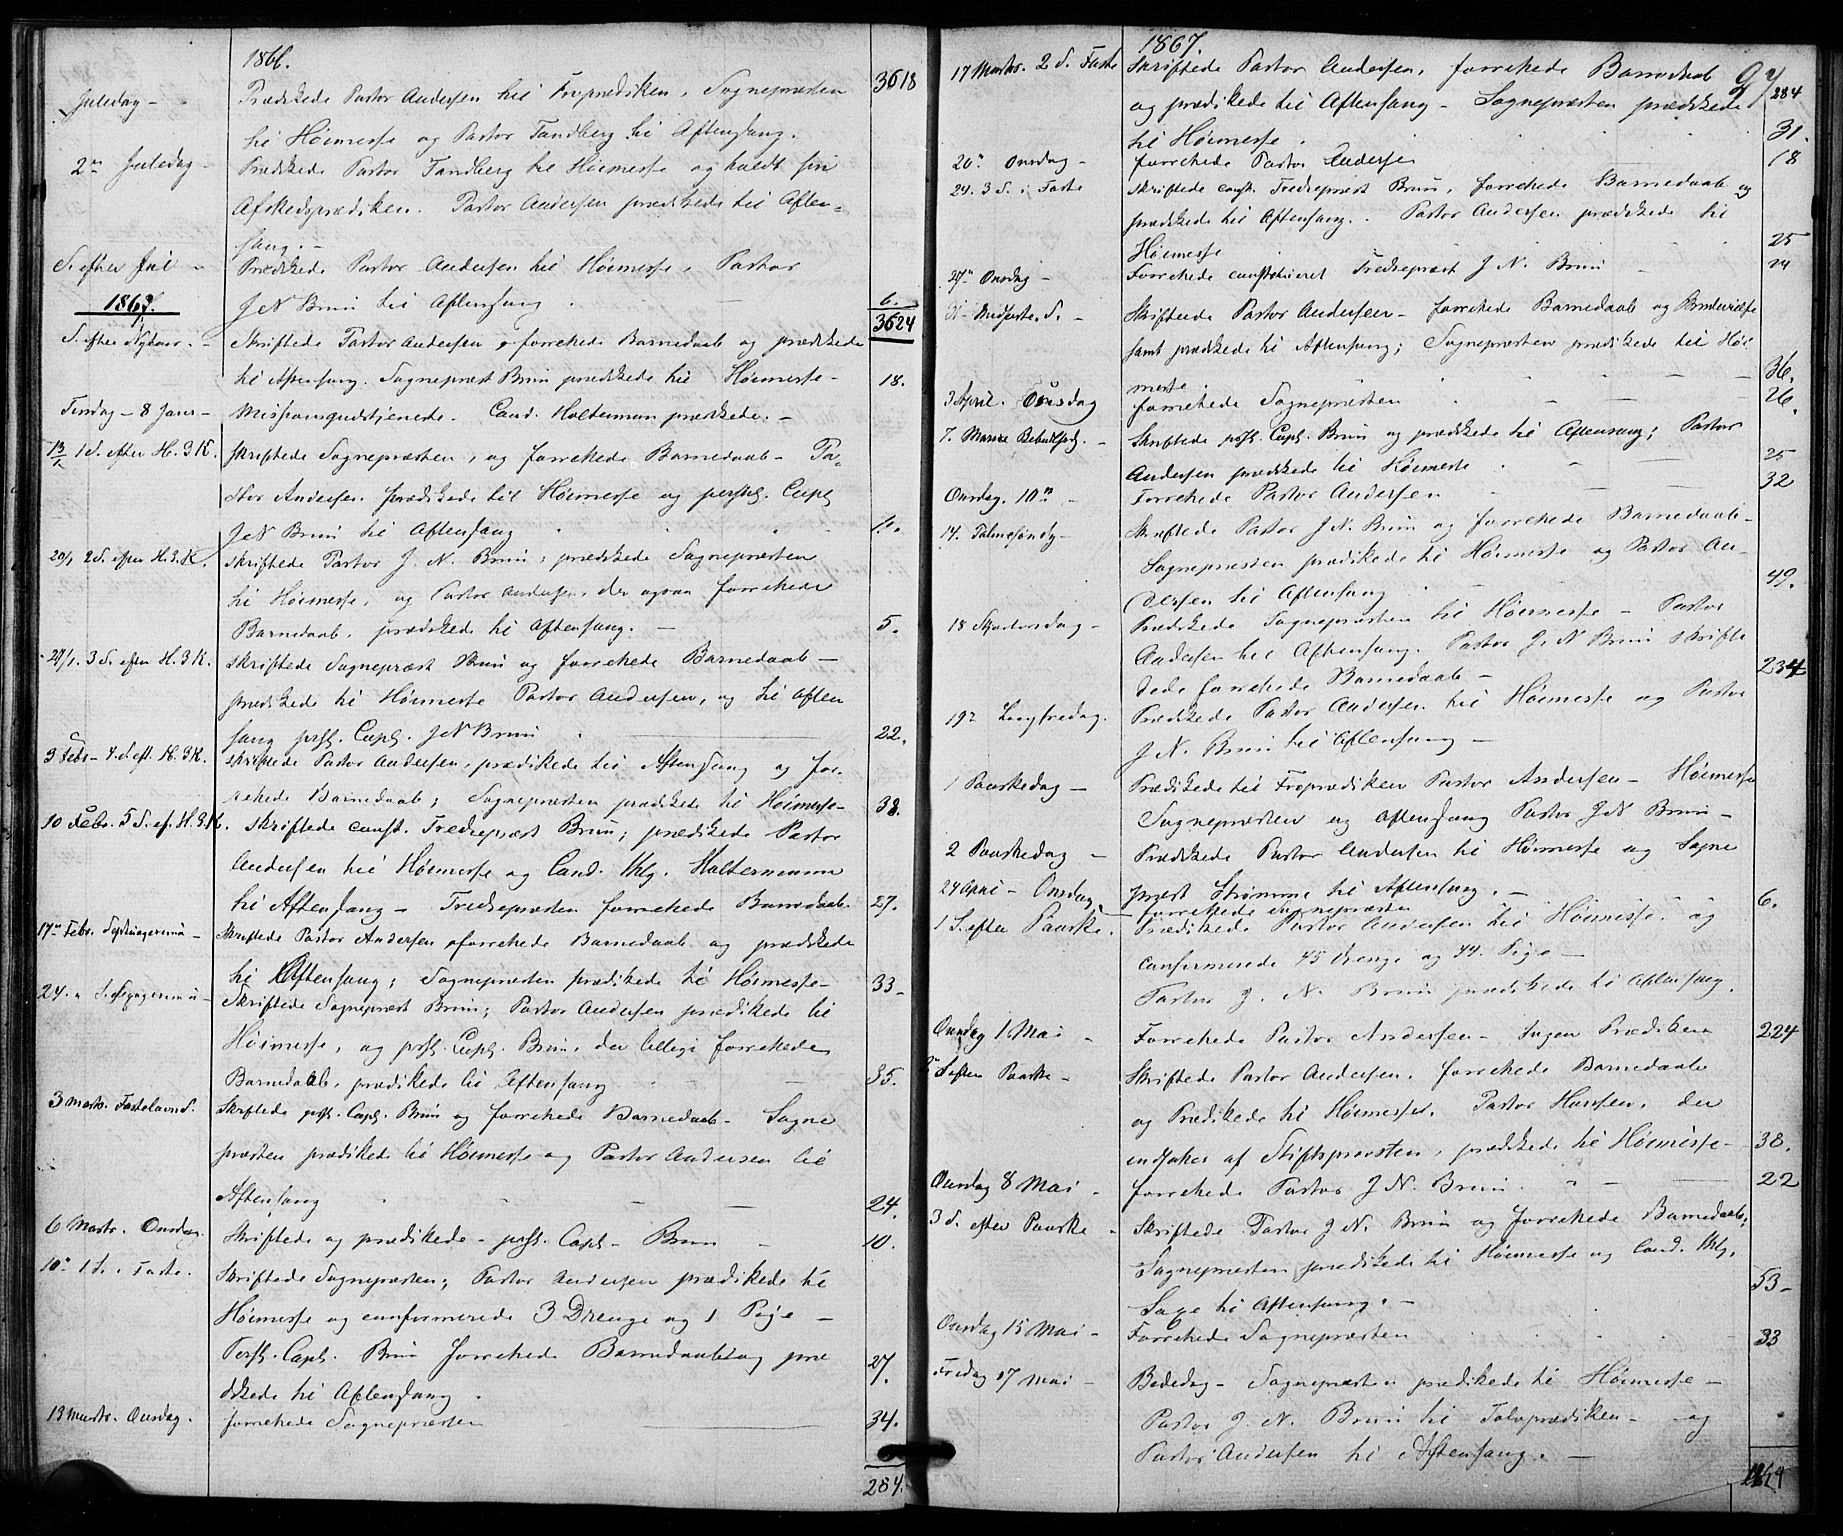 1866.
Juledag - Prædikede Pastor Andersen til Froprædiken, Sognepræsten 3618
til Høimesse og Pastor Tandberg til Aftensang.
2den Juledag - Prædikede Pastor Tandberg til Høimesse og holdt sin
Afskedsprædiken. Pastor Andersen prædikede til Aften-
sang. -
S. efter Jul - Prædikede Pastor Andersen til Høimesse, Pastor
J N Brun til Aftensang 6.
1867. 3624
S. efter Nytaar - Skriftede Pastor Andersen, forrettede Barnedaab og prædikede
til Aftensang. Sognepræst Brun prædikede til Høimesse - 18.
Tirsdag - 8 Janr - Missionsgudstjeneste. Cand. Haltermann prædikede. -
13/1 1 S. efter H. 3 K. skriftede Sognepræsten, og forrettede Barnedaab - Pa-
stor Andersen prædikede til Høimesse og perstl. Capl
J N Brun til Aftensang 11.
20/1 2 S. efter H. 3 K. skriftede Pastor J. N. Brun; prædikede Sognepræsten
til Høimesse, og Pastor Andersen, der ogsaa forrettede
Barnedaab, prædikede til Aftensang. - 5.
27/1. 3 S. efter H. 3 K. skriftede Sognepræst Brun og forrettede Barnedaab -
prædikede til Høimesse Pastor Andersen, og til Aften
sang prstl. Capl. J N Brun 22.
3 Febr - 4. S. eft. H. 3 K. skriftede Pastor Andersen, prædikede til Aftensang og for-
rettede Barnedaab; Sognepræsten prædikede til Høimesse - 38.
10 Febr. 5 S. ef. H. 3 K. skriftede const. Tredjepræst Brun; prædikede Pastor
Andersen til Høimesse og Cand. thlg. Haltermann
til Aftensang - Tredjepræsten forrettede Barnedaab. 27.
17de Febr. Septuagesima - Skriftede Pastor Andersen, forrettede Barnedaab og prædikede
til Aftensang; Sognepræsten prædikede til Høimesse - 33 -
24. " S. Sexagesima - Skriftede Sognepræst Brun; Pastor Andersen prædikede til
Høimesse, og prstl. Capl. Brun, der tillige forrettede
Barnedaab, prædikede til Aftensang 35.
3 Marts. Fastelavns S. Skriftede prstl. Capl. Brun og forrettede Barnedaab - Sogne
præsten prædikede til Høimesse og Pastor Andersen til
Aftensang 24.
6 Marts. Onsdag. Skriftede og prædikede - prstl. Capl - Brun - 10.
10de 1 S. i Faste. Skriftede Sognepræsten; Pastor Andersen prædikede til
Høimesse og confirmerede 3 Drenge og 1 Pige -
Perstl. Capl. Brun forrettede Barnedaab og præ
dikede til Aftensang. 27.
13 Marts. Onsdag. forrettede Sognepræsten 34.
284.
1867. 97
17 Marts. 2 S. Faste Skriftede Pastor Andersen, forrettede Barnedaab 284
og prædikede til Aftensang - Sognepræsten prædikede
til Høimesse. 31.
20de Onsdag - forrettede Pastor Andersen 18
24. 3 S. i Faste Skriftede const. Tredjepræst Brun, forrettede Barnedaab og
prædikede til Aftensang. Pastor Andersen prædikede til
Høimesse 25
27de Onsdag - Forrettede constitueret Tredjepræst J. N. Brun - 24
31 - Midfaste. S. - Skriftede Pastor Andersen - forrettede Barnedaab og Brudevielse
samt prædikede til Aftensang; Sognepræsten prædikede til Høi
messe. 36.
3 April. Onsdag forrettede Sognepræsten 26.
7. Mariæ Bebudelsesdg. - Skriftede prstl. Capl. Brun og prædikede til Aftensang; Pastor
Andersen prædikede til Høimesse 25
Onsdag. 10de - Forrettede Pastor Andersen 32
14. Palmesøndg - Skriftede Pastor J. N. Brun og forrettede Barnedaab -
Sognepræsten prædikede til Høimesse og Pastor An-
dersen til Aftensang 49.
18 Skjærtorsdag - Prædikede Sognepræsten til Høimesse - Pastor
Andersen til Aftensang. Pastor J. N Brun skrifte
dede forrettede Barnedaab - 234
19de Langfredag. Prædikede Pastor Andersen til Høimesse og Pastor
J N. Brun til Aftensang -
1 Paaskedag - Prædikede til Froprædiken Pastor Andersen - Høimesse
Sognepræsten og Aftensang Pastor J N Brun -
2 Paaskedag - Prædikede Pastor Andersen til Høimesse og Sogne
præst Strømme til Aftensang. -
24 April - Onsdag. forrettede Sognepræsten 6.
1 S. efter Paaske. Prædikede Pastor Andersen til Høimesse og
confirmerede 45 Drenge og 44 Pige -
Pastor J. N. Brun prædikede til Aftensang.
Onsdag 1 Mai - Forrettede Pastor Andersen - Ingen Prædiken 224
2 S. efter Paaske - Skriftede Pastor Andersen, forrettede Barnedaab
og Prædikede til Høimesse. Pastor Hanssen, der
indsattes af Stiftsprovsten, prædikede til Høimesse - 38.
Onsdag 8 Mai - forrettede Pastor J N. Brun. 22
3 S. efter Paaske - Skriftede Pastor J N. Brun og forrettede Barnedaab;
Sognepræsten prædikede til Høimesse og Cand. thlg.
til Aftensang. - 53 -
Onsdag 15 Mai - Forrettede Sognepræsten 33
Fredag 17 Mai - Bededag - Sognepræsten prædikede til Høimesse -
Pastor J. N. Brun til Tolvprædiken - og
Pastor Andersen til Aftensang. -